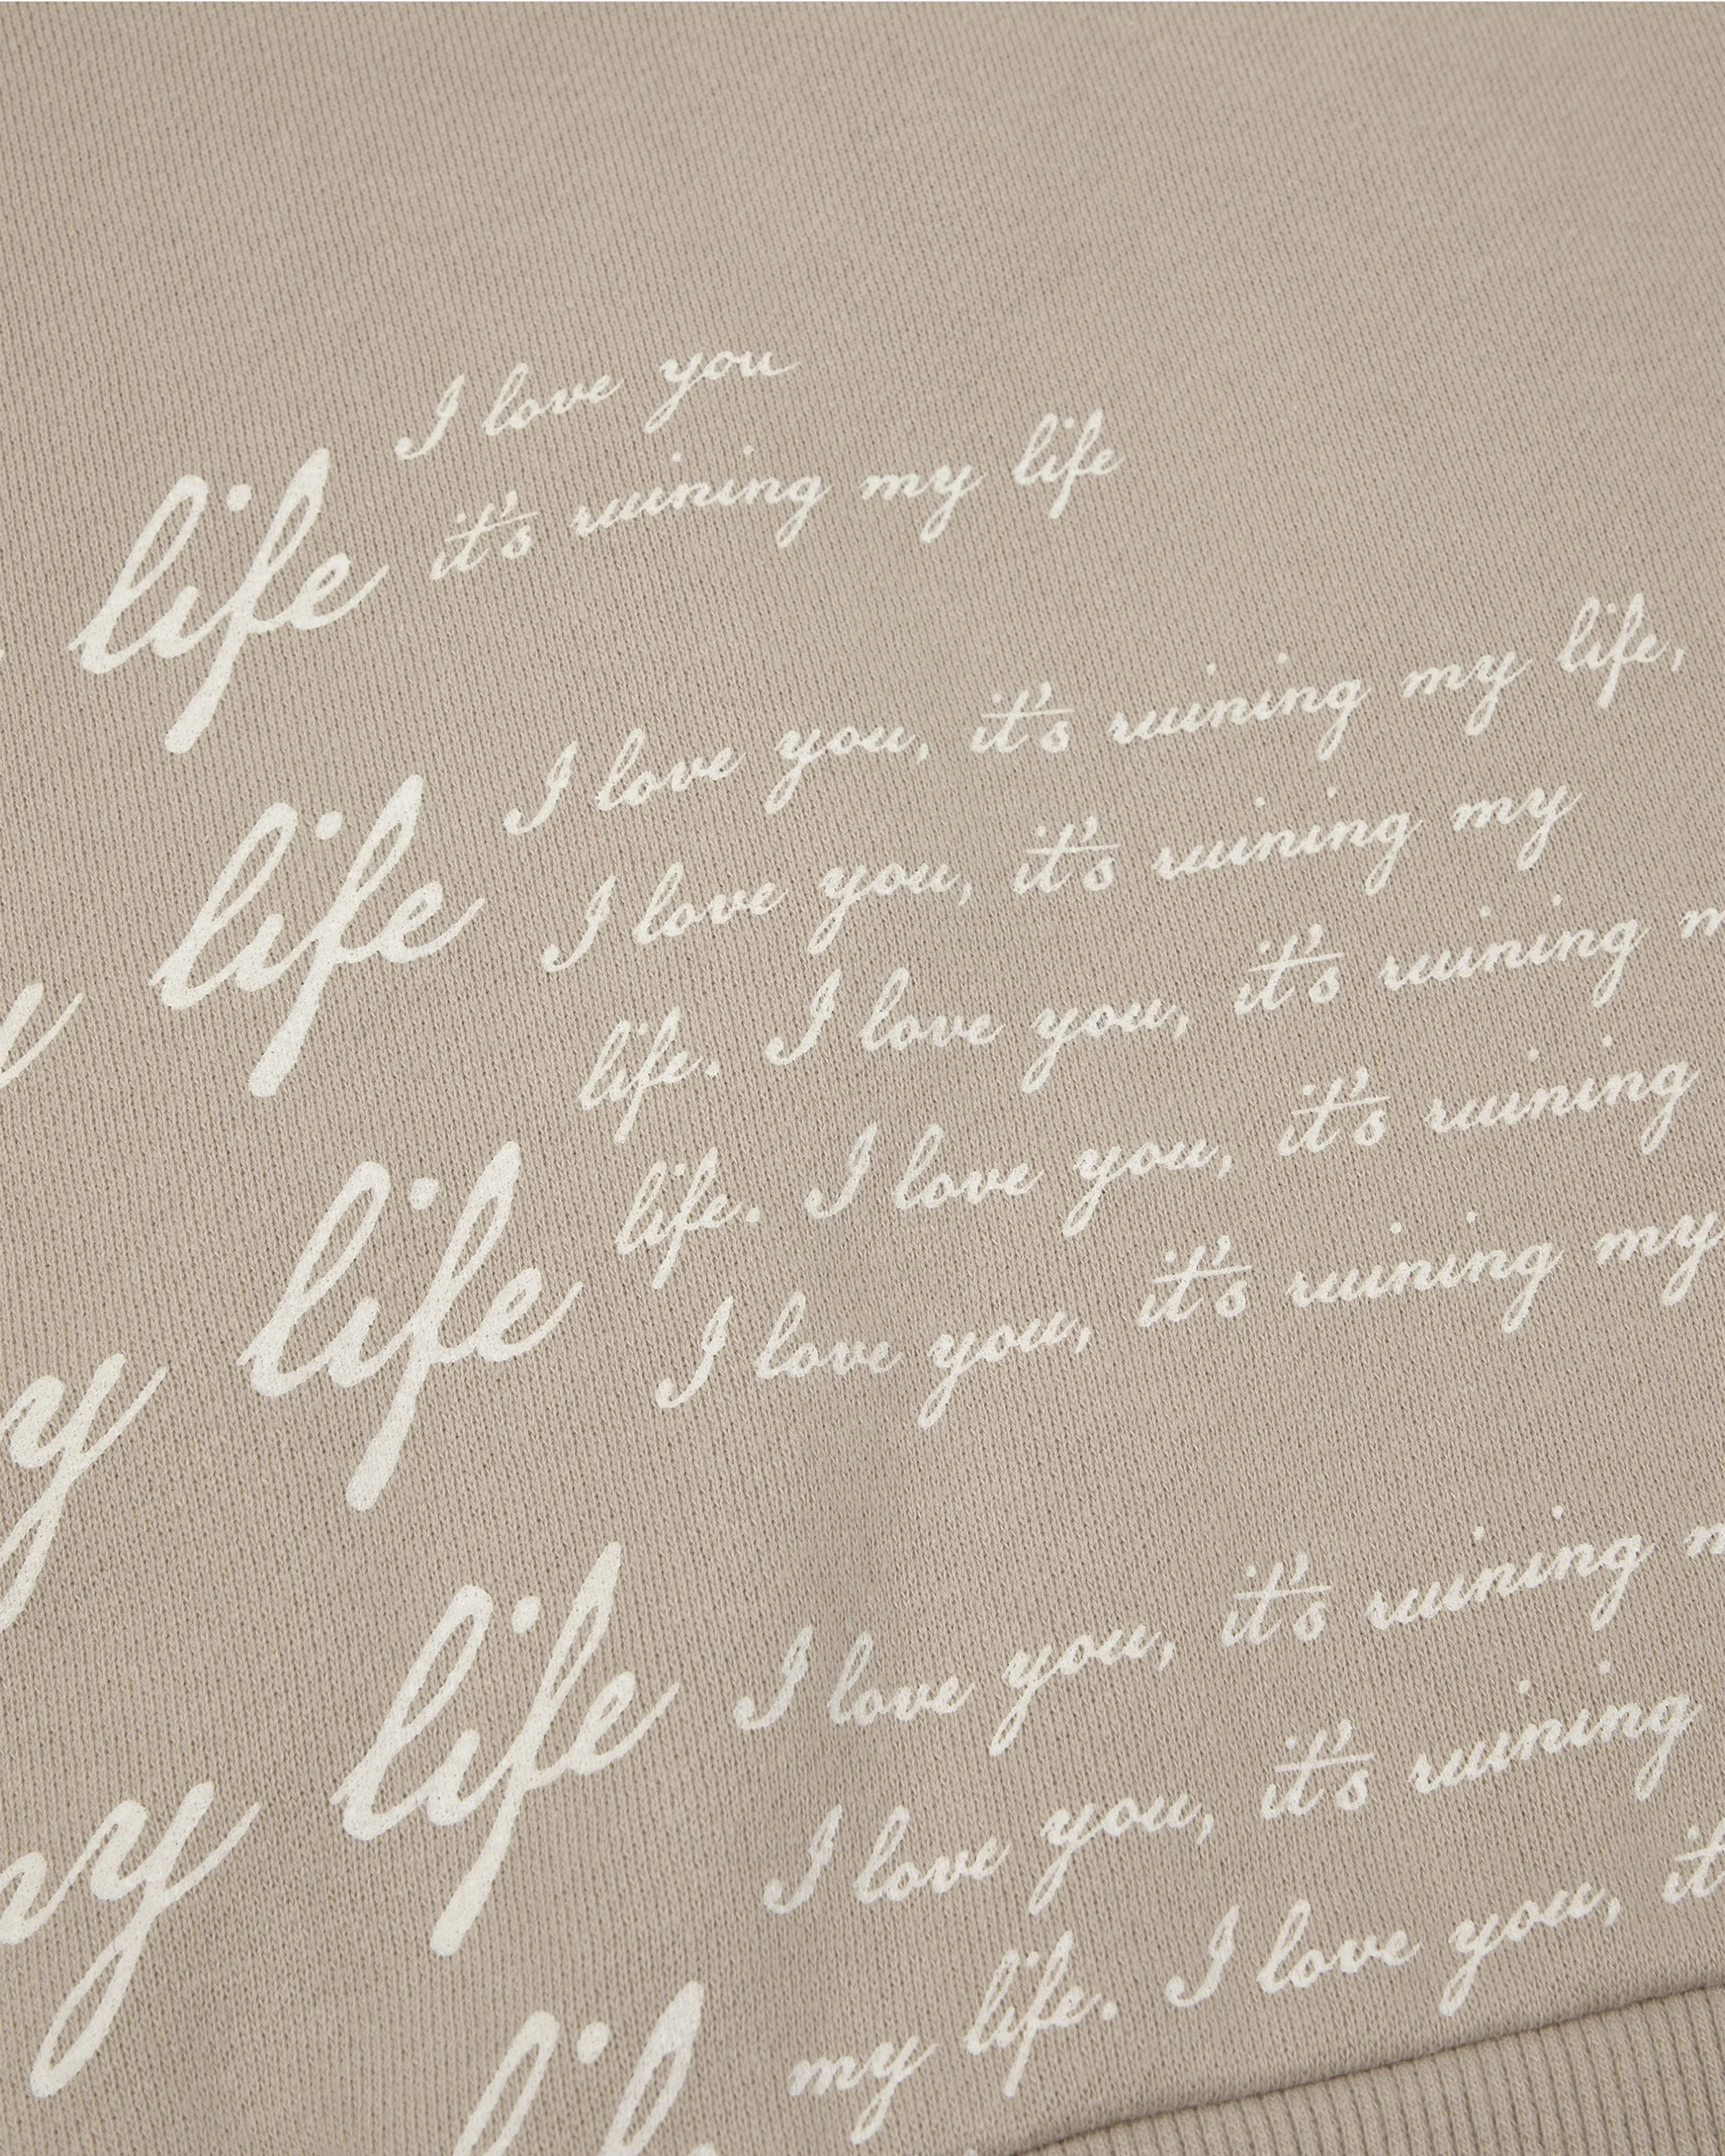 I love you
life it's ruining my life
I love you, it's ruining my life,
life I love you, it's ruining my
life. I love you, it's ruining
life. I love you, it's ruining
y life I love you, it's ruining my
I love you, it's ruining
y life I love you, it's ruining
my life. I love you, it
life